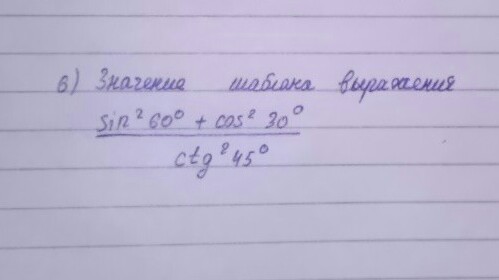 в) Значение шаблона выражения
sin² 60⁰ + cos² 30⁰
ctg² 45⁰